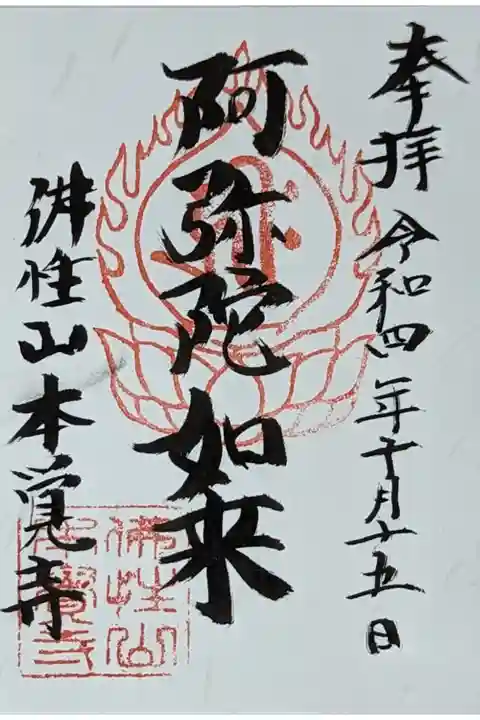 奉拝 令和四年十月十五日
阿弥陀如来
佛性山本覚寺
佛性山本覺寺